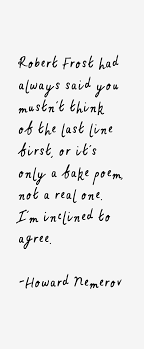 Robert Frost had
always said you
mustn't think
of the last line
first, or it's
only a fake poem,
not a real one.
I'm inclined to
agree.
-Howard Nemerov